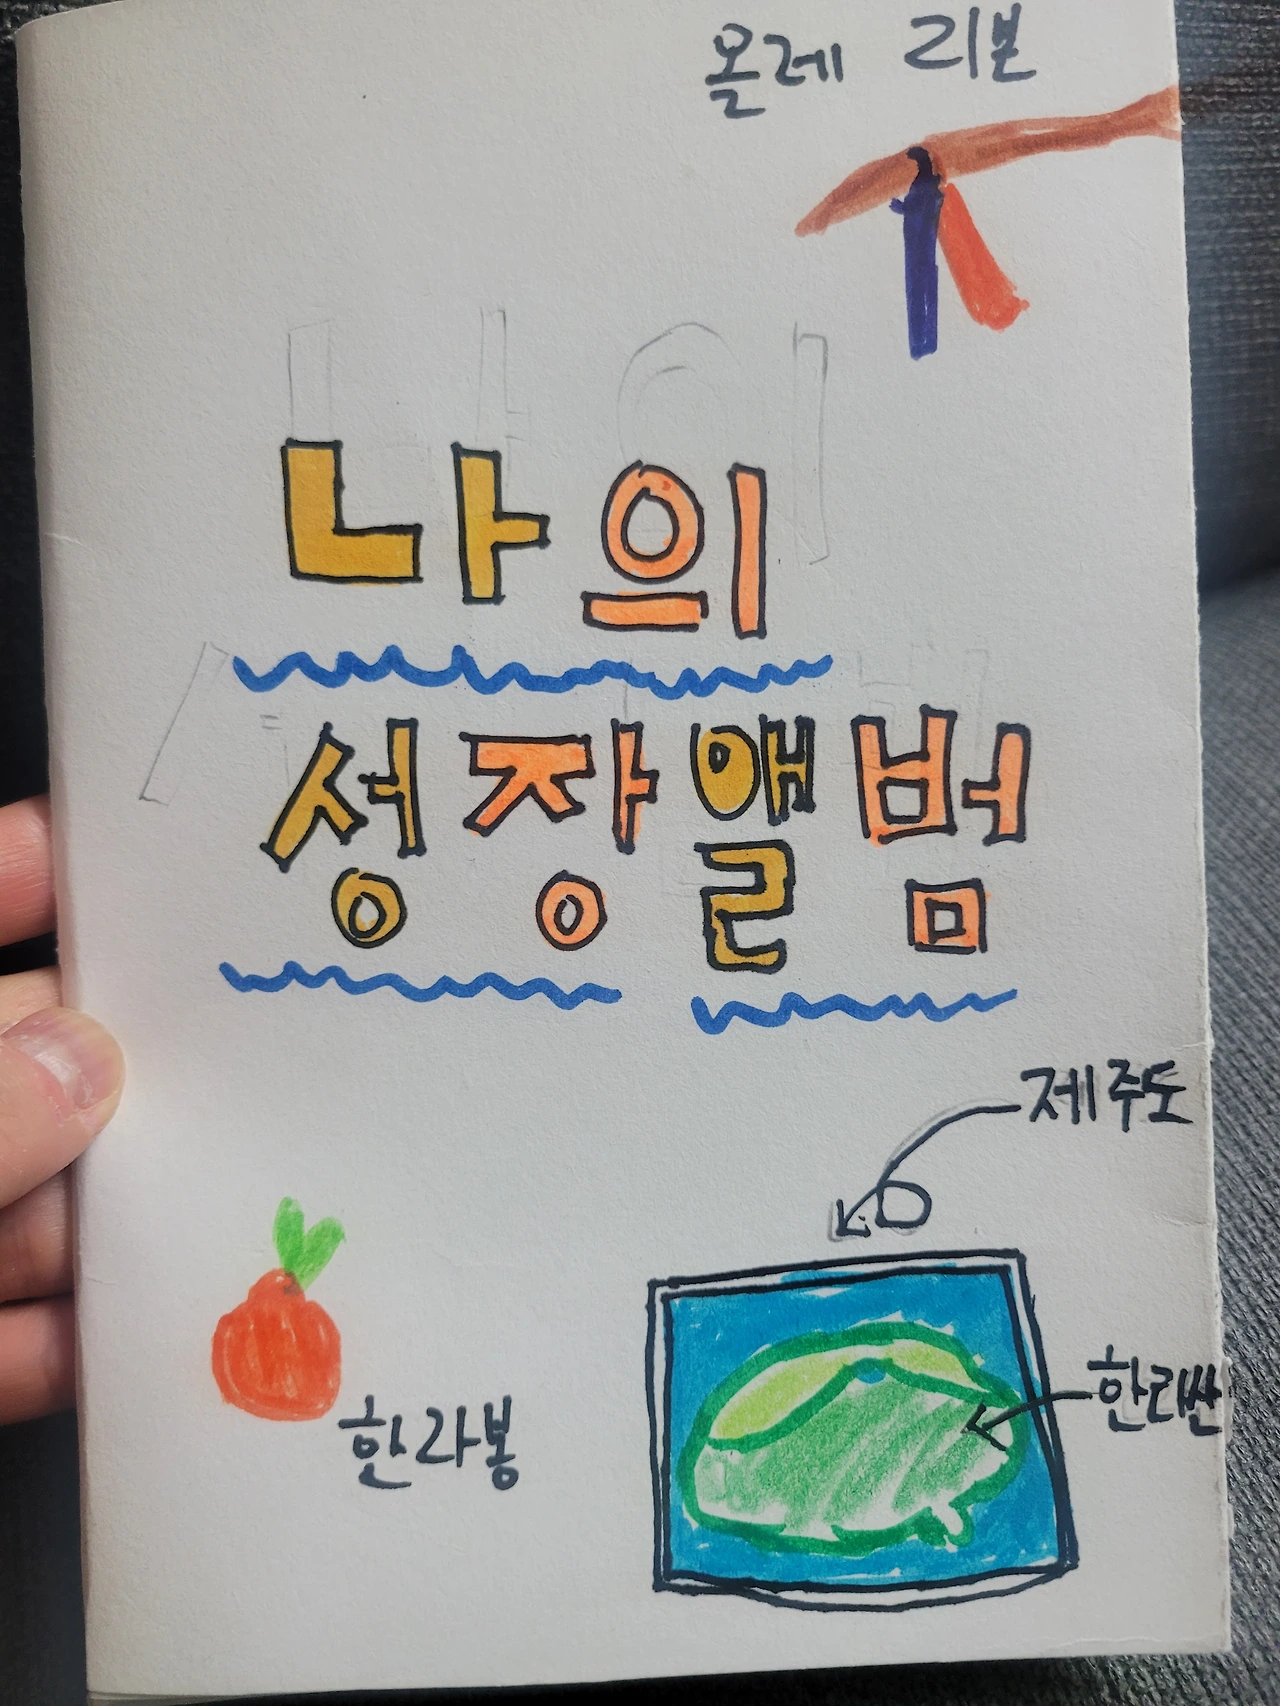 올레 리본
나의
성장앨범
제주도
한라봉